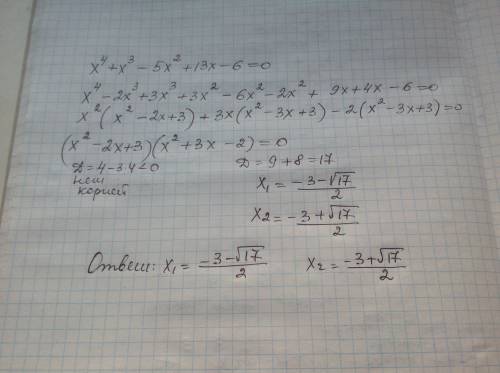 x⁴ + x³ − 5x² + 13x − 6 = 0
x⁴ − 2x³ + 3x³ + 3x² − 6x² − 2x² + 9x + 4x − 6 = 0
x²(x² − 2x + 3) + 3x(x² − 3x + 3) − 2(x² − 3x + 3) = 0
(x² − 2x + 3)(x² + 3x − 2) = 0
D = 4 − 3·4 < 0 D = 9 + 8 = 17
нет
корней
x₁ = (−3 − √17)/2
x₂ = (−3 + √17)/2
Ответ: x₁ = (−3 − √17)/2 x₂ = (−3 + √17)/2